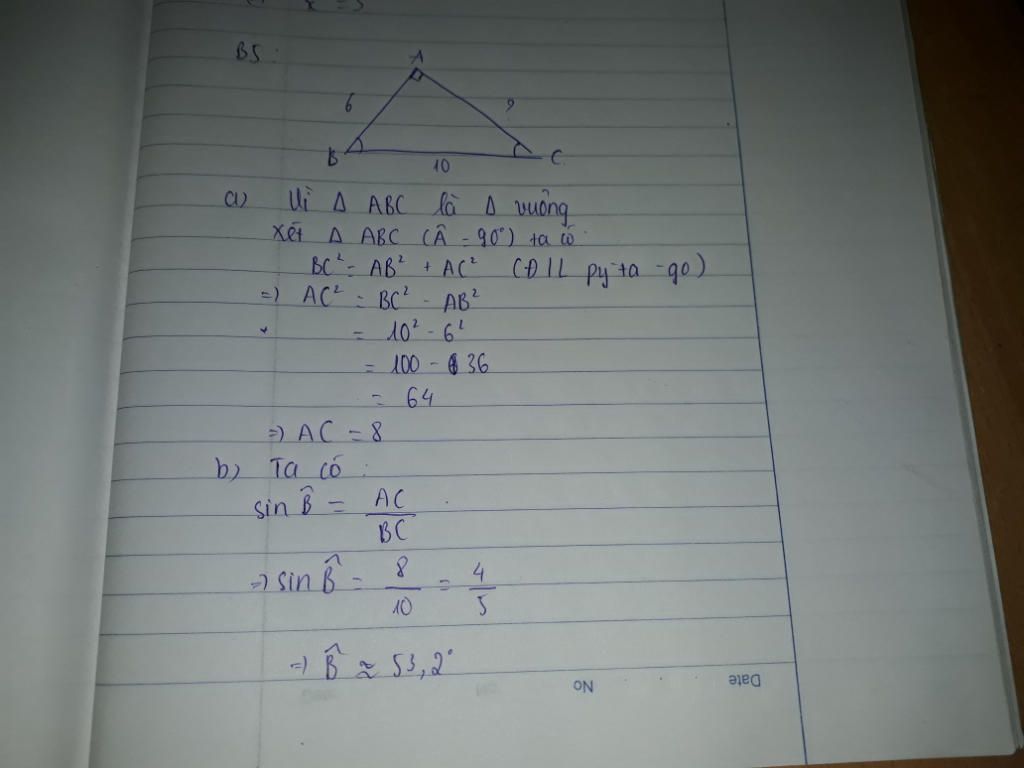 B5:
A
6
?
B
10
C
a) Vì Δ ABC là Δ vuông
Xét Δ ABC (Â = 90°) ta có
BC² = AB² + AC² (Đ/L py-ta-go)
=) AC² = BC² - AB²
= 10² - 6²
= 100 - 36
= 64
=) AC = 8
b) Ta có :
sin B̂ = AC/BC
=) sin B̂ = 8/10 = 4/5
=) B̂ ≈ 53,2°
Date No